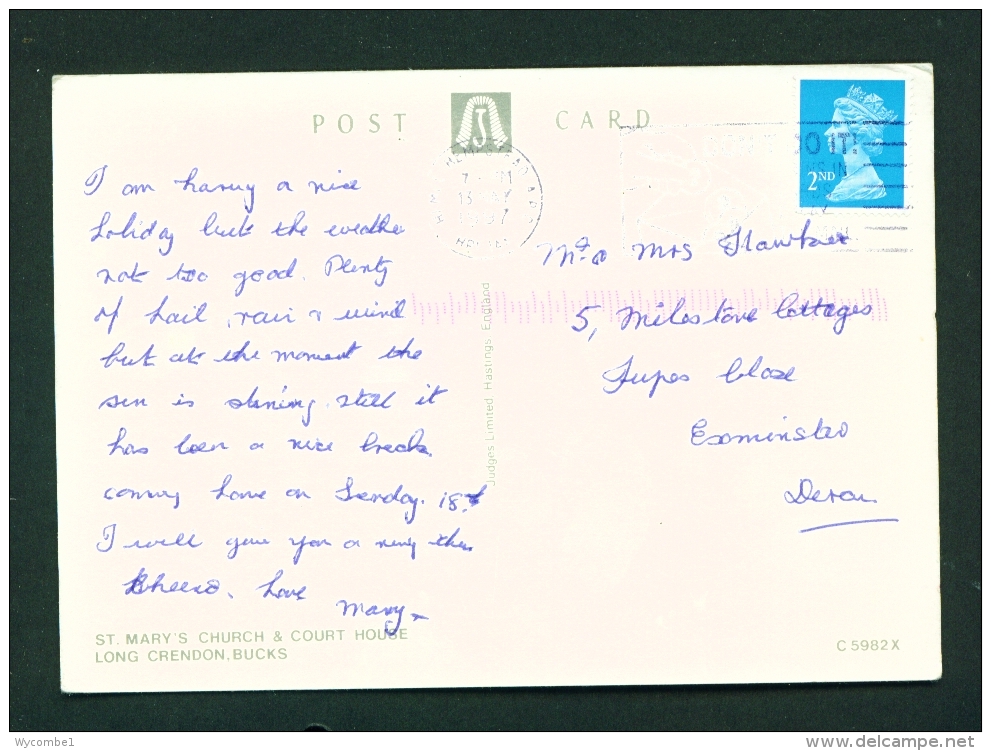 POST CARD
HEMPSTEAD
2ND
I am having a nice
holiday but the weather
not too good. Plenty
of hail, rain & wind
but at the moment the
sun is shining. Still it
has been a nice break.
coming home on Sunday. 18th
I will give you a ring then
Cheerio. Love
Mary
Mr & Mrs Hawker
5, Milestone Cottages
Close
Exminster
Devon
Judges Limited, Hastings, England
ST. MARY'S CHURCH & COURT HOUSE
LONG CRENDON, BUCKS
C 5982X
Wycombe1